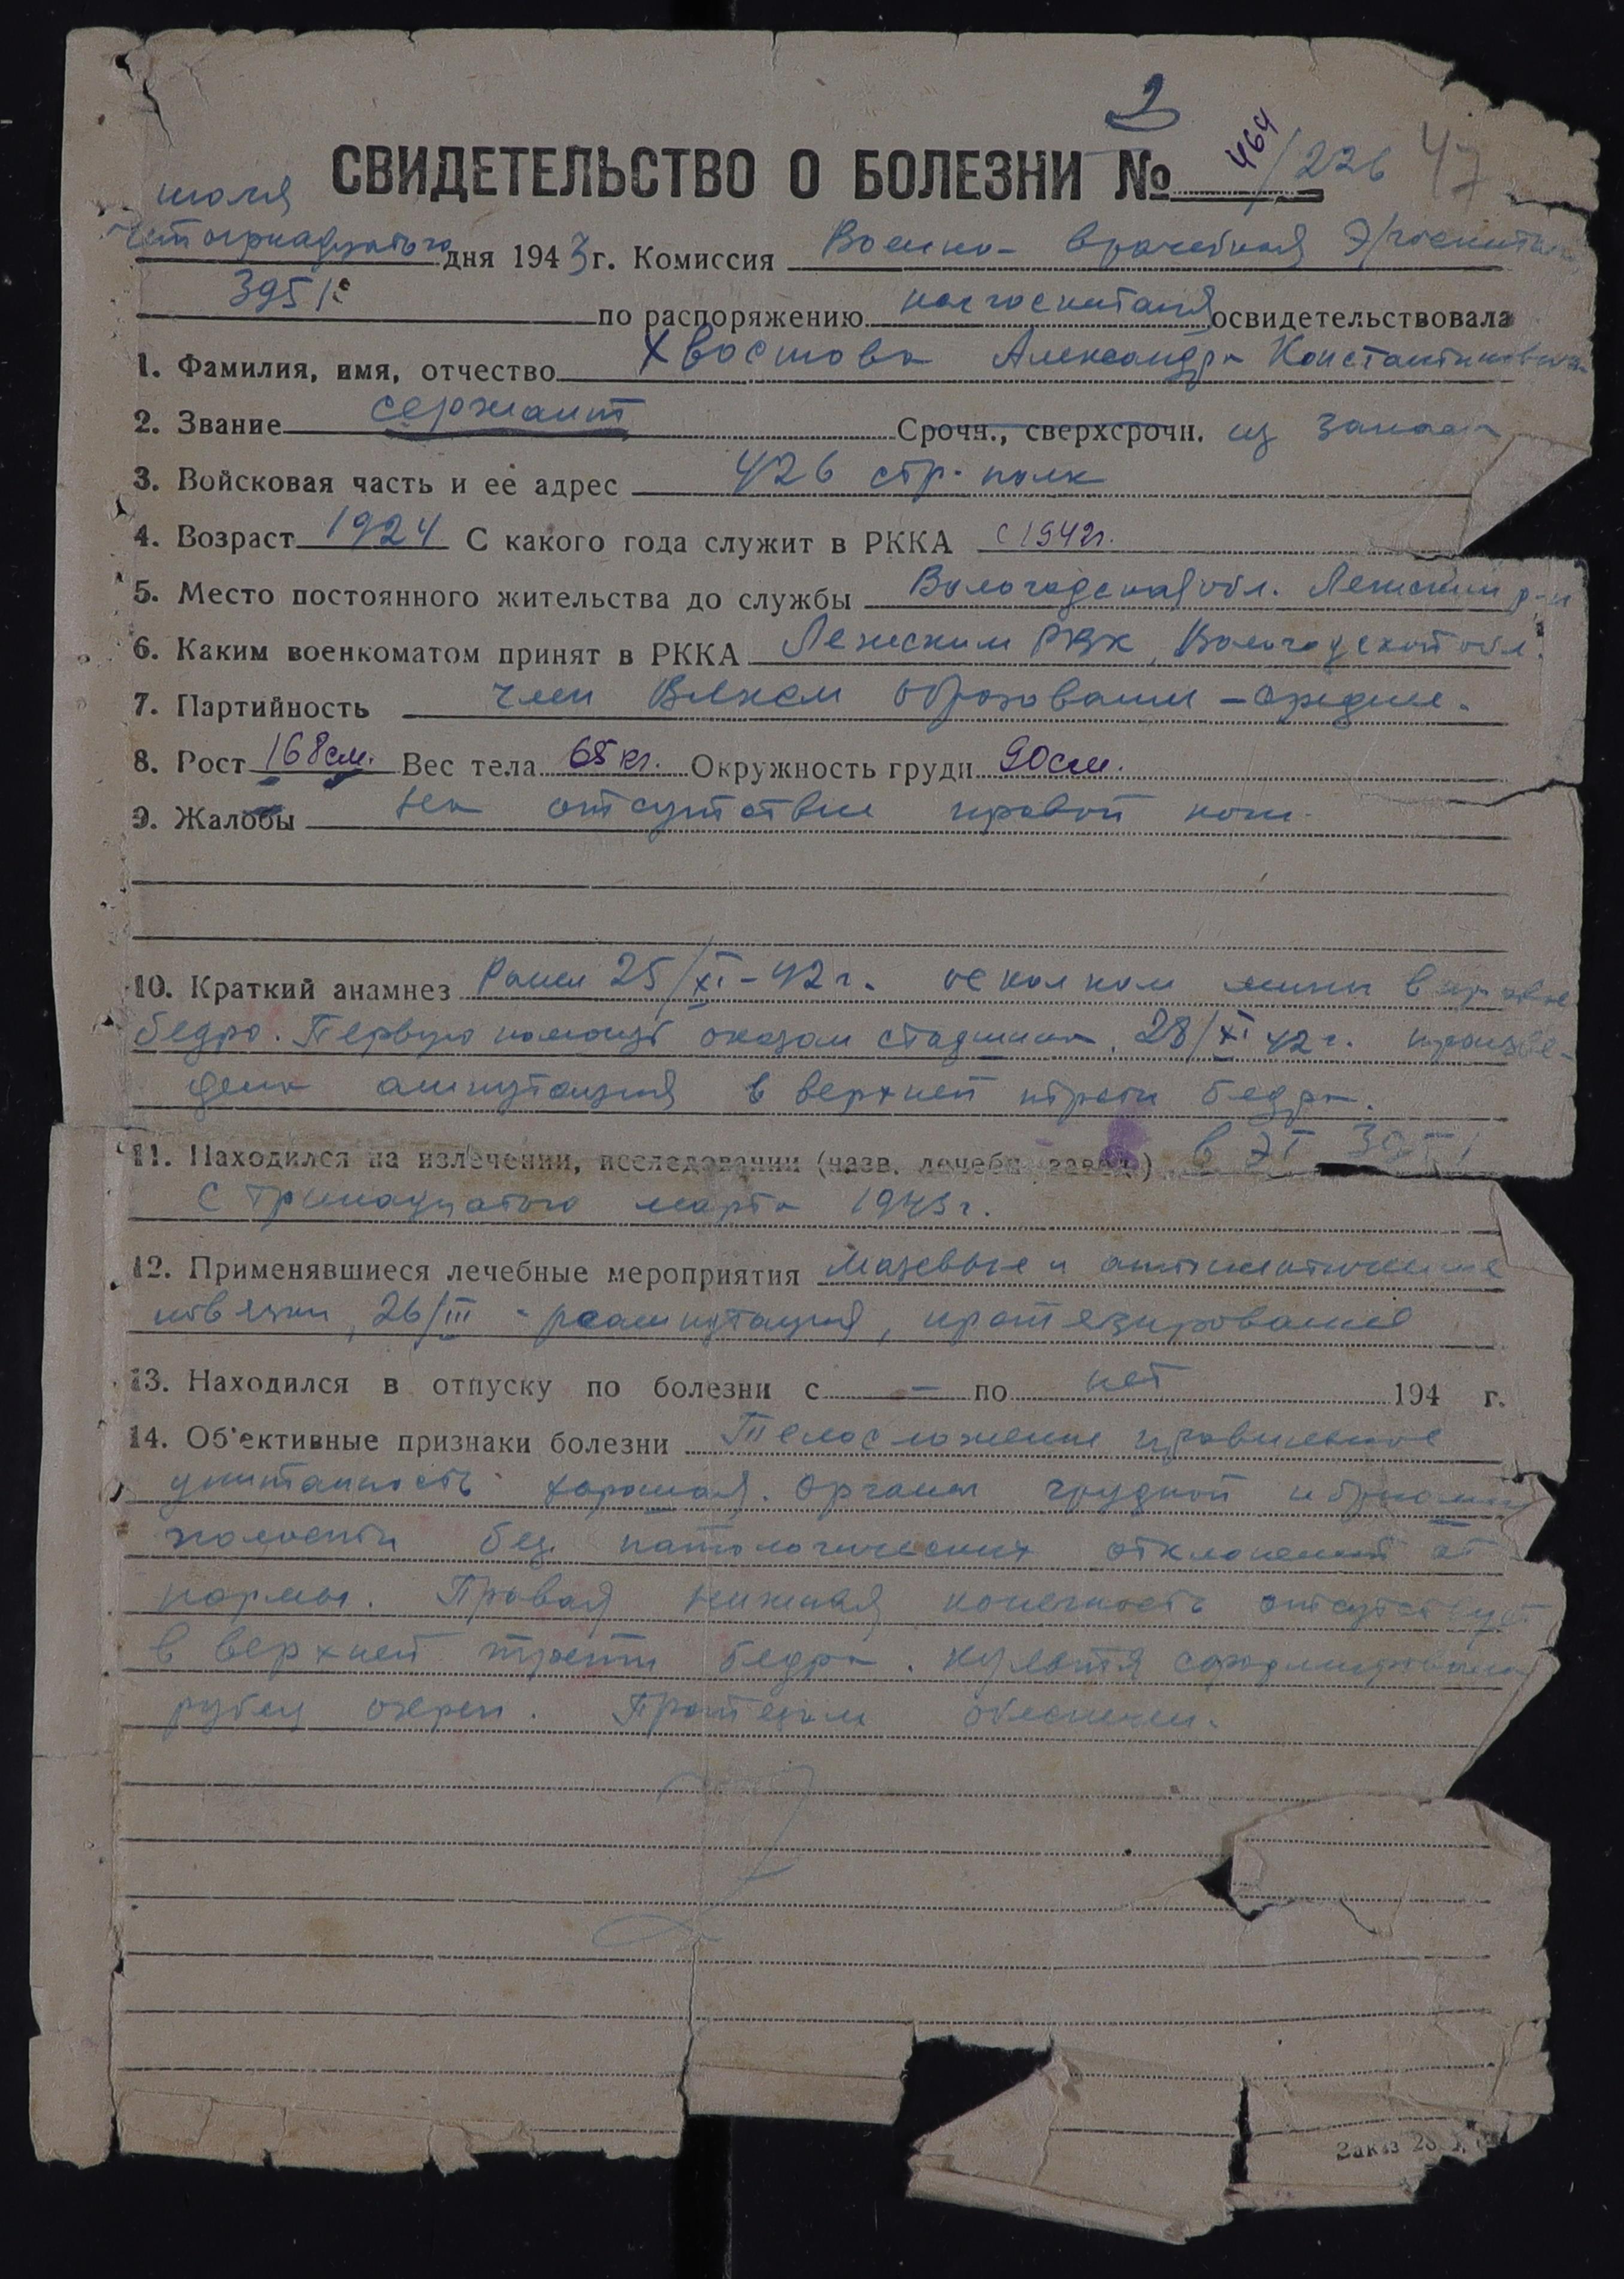 2
СВИДЕТЕЛЬСТВО О БОЛЕЗНИ № 464/226 47
июля
четырнадцатого дня 1943 г. Комиссия Военно-врачебная Э/госпиталя
3951 по распоряжению нач госпиталя освидетельствовала
1. Фамилия, имя, отчество Хвостова Александра Константиновича
2. Звание сержант Срочн., сверхсрочн. из запаса
3. Войсковая часть и её адрес 426 стр. полк
4. Возраст 1924 С какого года служит в РККА с 1942г.
5. Место постоянного жительства до службы Вологодская обл. Лежский р-н
6. Каким военкоматом принят в РККА Лежским РВК, Вологодской обл.
7. Партийность член ВЛКСМ образование - среднее.
8. Рост 168см. Вес тела 65 кг. Окружность груди 90см.
9. Жалобы на отсутствие правой ноги.
10. Краткий анамнез Ранен 25/XI-42 г. осколком мины в правое
бедро. Первую помощь оказал 28/XI 42 г. произве-
дена ампутация в верхней трети бедра.
11. Находился на излечении, исследовании (назв. лечебн. завед.) в ЭГ 3951
с тринадцатого марта 1943 г.
12. Применявшиеся лечебные мероприятия Мазевые и антисептические
повязки, 26/III - реампутация, протезирование
13. Находился в отпуску по болезни с — по нет 194 г.
14. Об'ективные признаки болезни Телосложение правильное
упитанность хорошая. Органы грудной и брюшной
полости без патологических отклонений от
нормы. Правая нижняя конечность отсутствует
в верхней трети бедра. Культя сформирована
рубец окреп. Протезом обеспечен.
Заказ